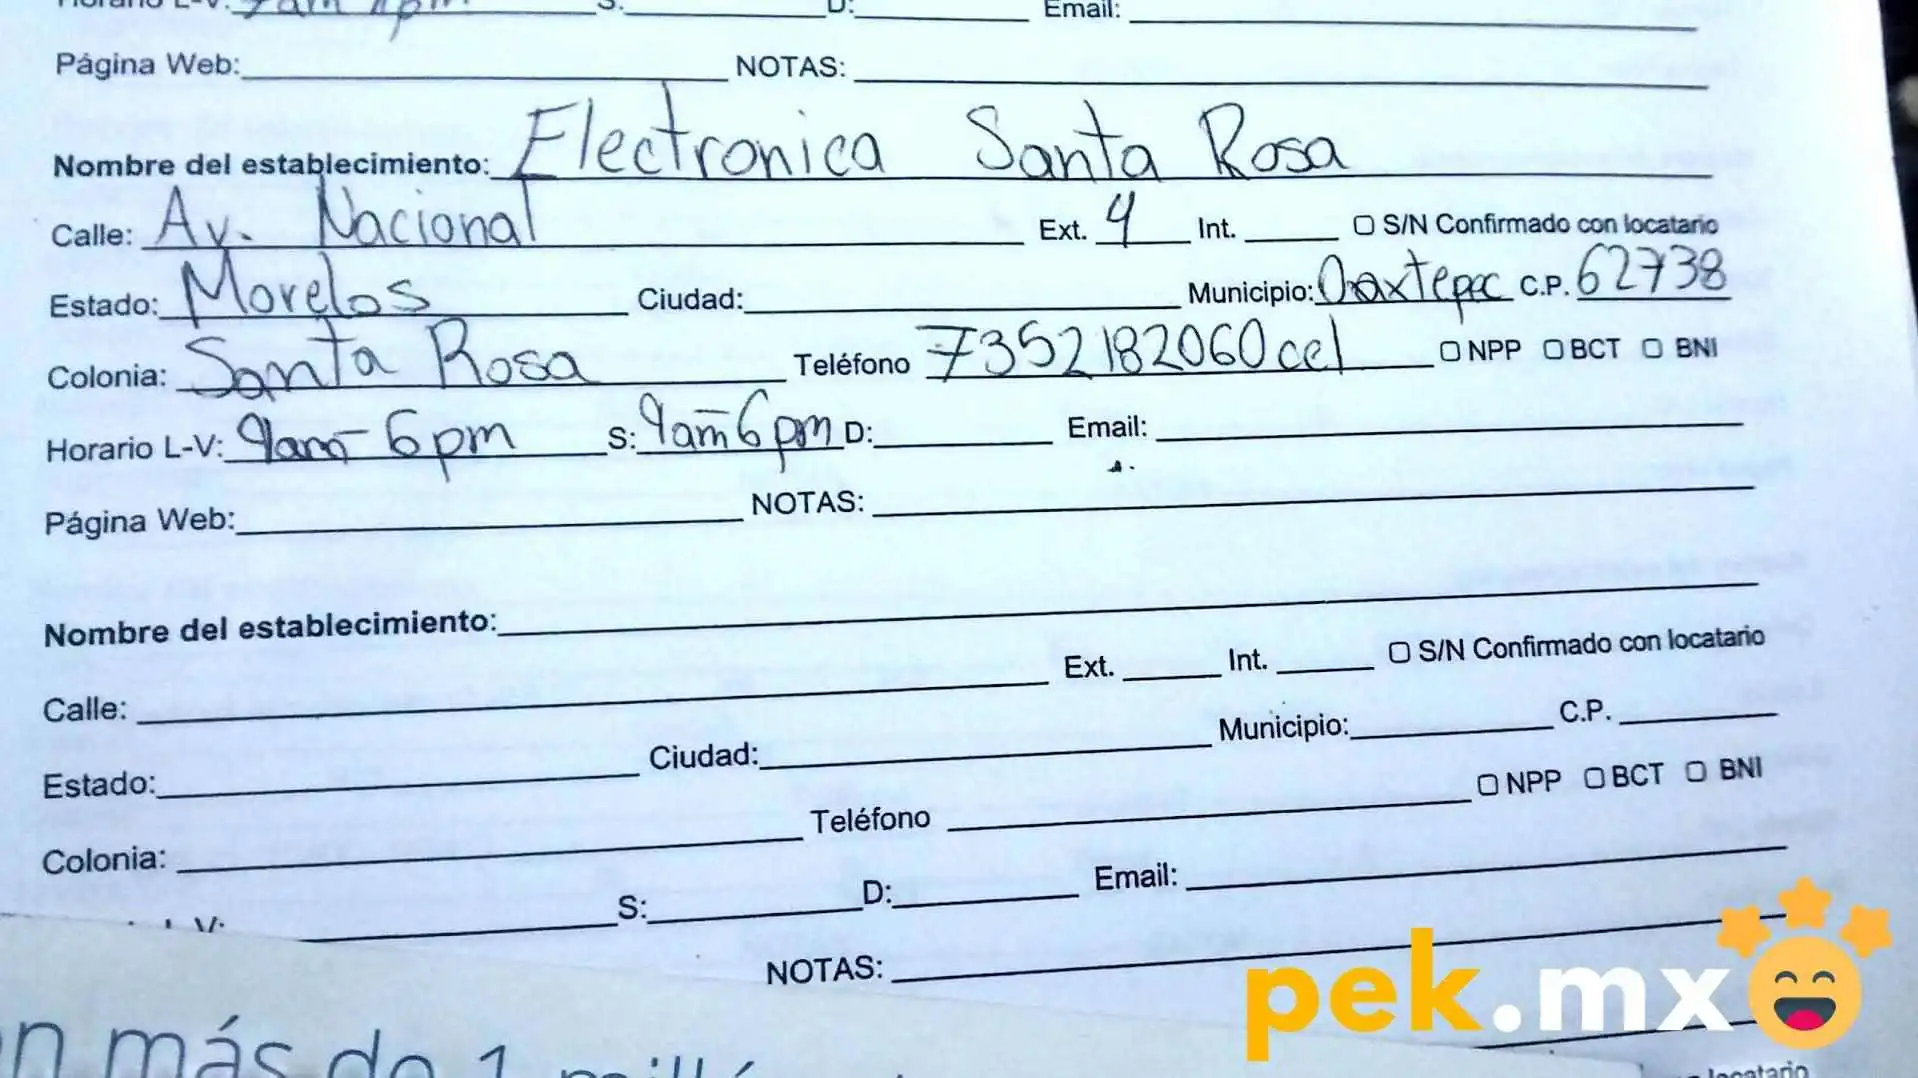 Horario L-V: 9am 6pm S: D: Email:
Página Web: NOTAS:
Nombre del establecimiento: Electronica Santa Rosa
Calle: Av. Nacional Ext. 4 Int. S/N Confirmado con locatario
Estado: Morelos Ciudad: Municipio: Oaxtepec C.P. 62738
Colonia: Santa Rosa Teléfono 7352182060 cel NPP BCT BNI
Horario L-V: 9am - 6pm S: 9am-6pm D: Email:
Página Web: NOTAS:
Nombre del establecimiento:
Calle: Ext. Int. S/N Confirmado con locatario
Estado: Ciudad: Municipio: C.P.
Colonia: Teléfono NPP BCT BNI
V: S: D: Email:
NOTAS:
pek.mx
n más de 1
locatario